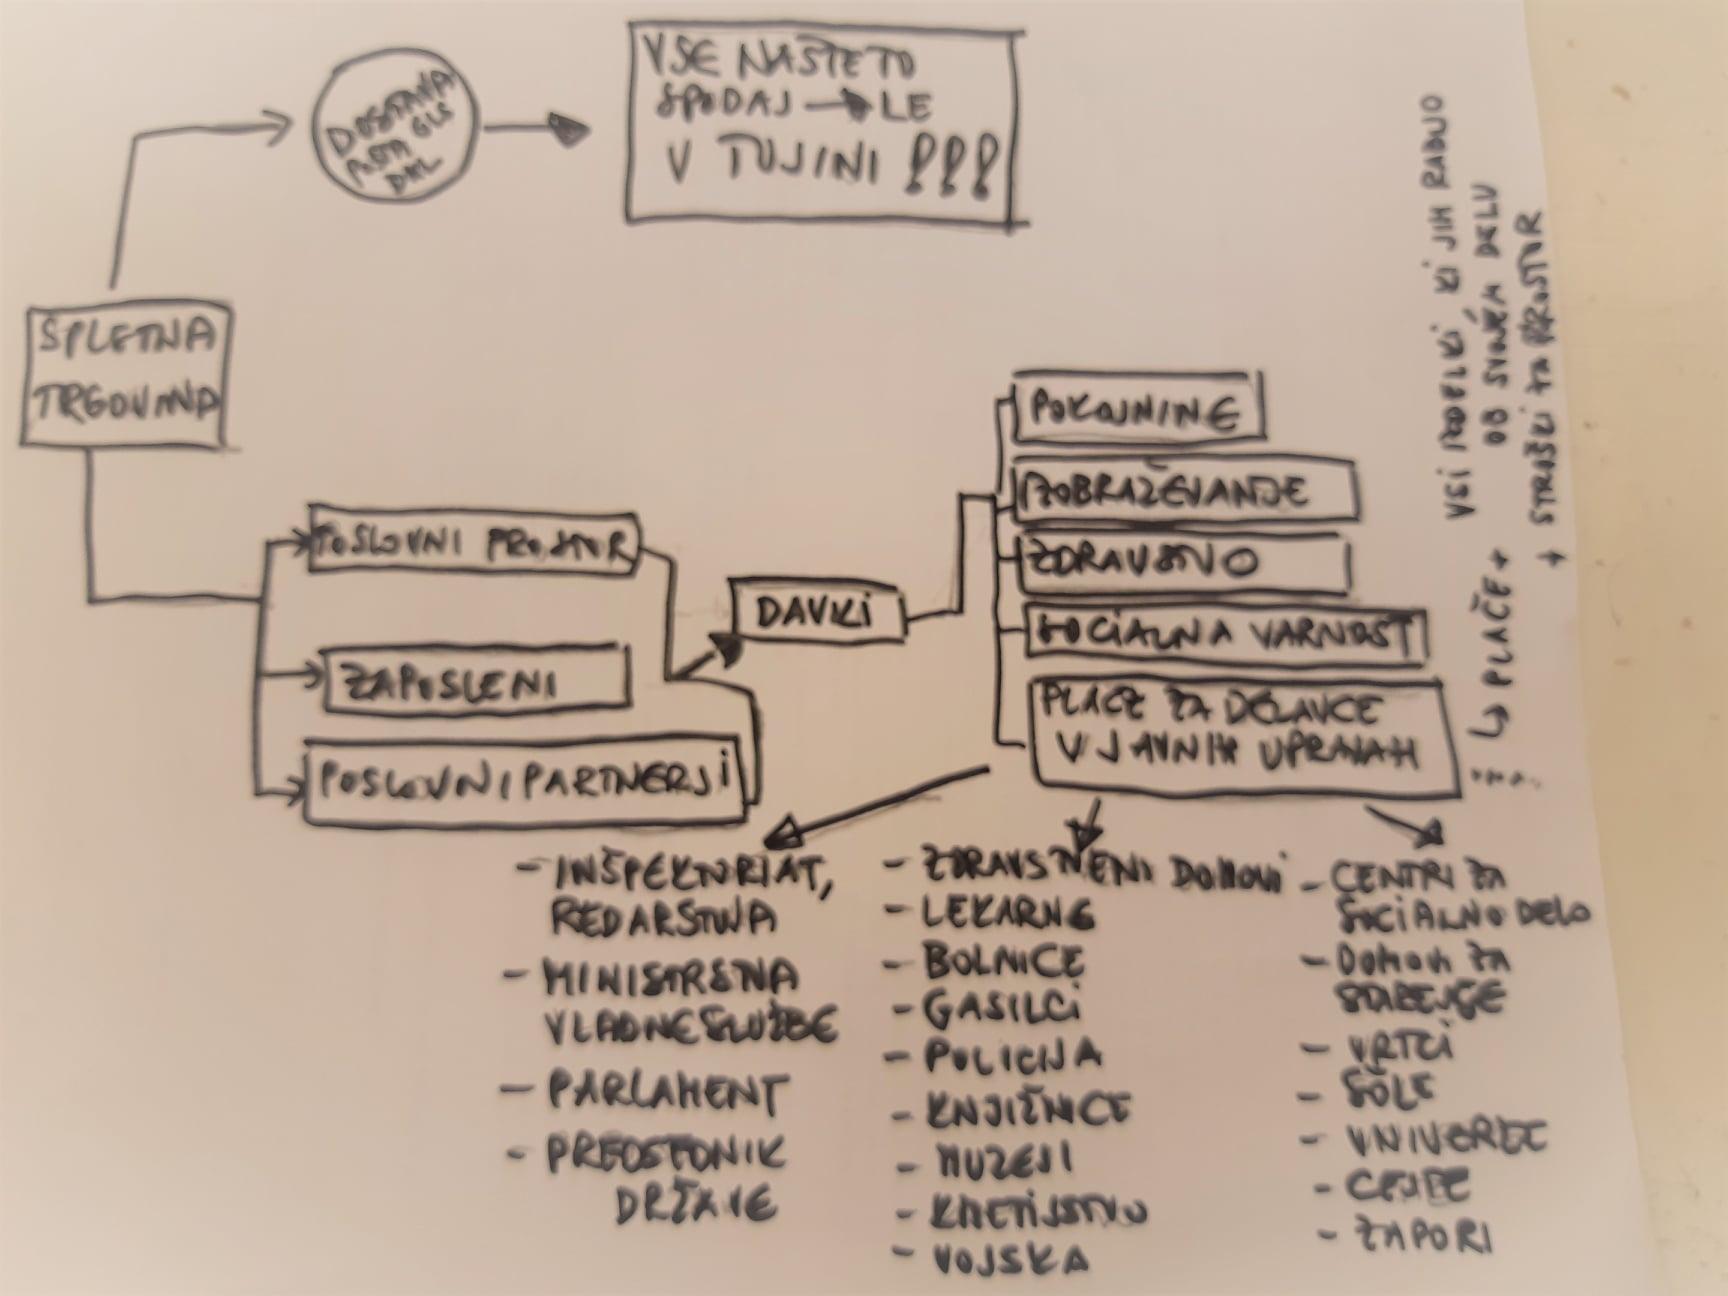 DOSTAVA
POŠTA GLS
DHL
VSE NAŠTETO
SPODAJ → LE
V TUJINI !!!
SPLETNA
TRGOVINA
POSLOVNI PROSTOR
ZAPOSLENI
POSLOVNI PARTNERJI
DAVKI
POKOJNINE
IZOBRAŽEVANJE
ZDRAVSTVO
SOCIALNA VARNOST
PLAČE ZA DELAVCE
V JAVNIH UPRAVAH
- INŠPEKTORIAT,
REDARSTVA
- MINISTRSTVA
VLADNE SLUŽBE
- PARLAMENT
- PREDSEDNIK
DRŽAVE
- ZDRAVSTVENI DOMOVI
- LEKARNE
- BOLNICE
- GASILCI
- POLICIJA
- KNJIŽNICE
- MUZEJI
- KMETIJSTVO
- VOJSKA
- CENTRI ZA
SOCIALNO DELO
- DOMOVI ZA
STAREJŠE
- VRTCI
- ŠOLE
- UNIVERZE
- CESTE
- ZAPORI
↳ PLAČE +
VSI IZDELKI, KI JIH RABIJO
OB SVOJEM DELU
+ STROŠKI ZA PROSTOR